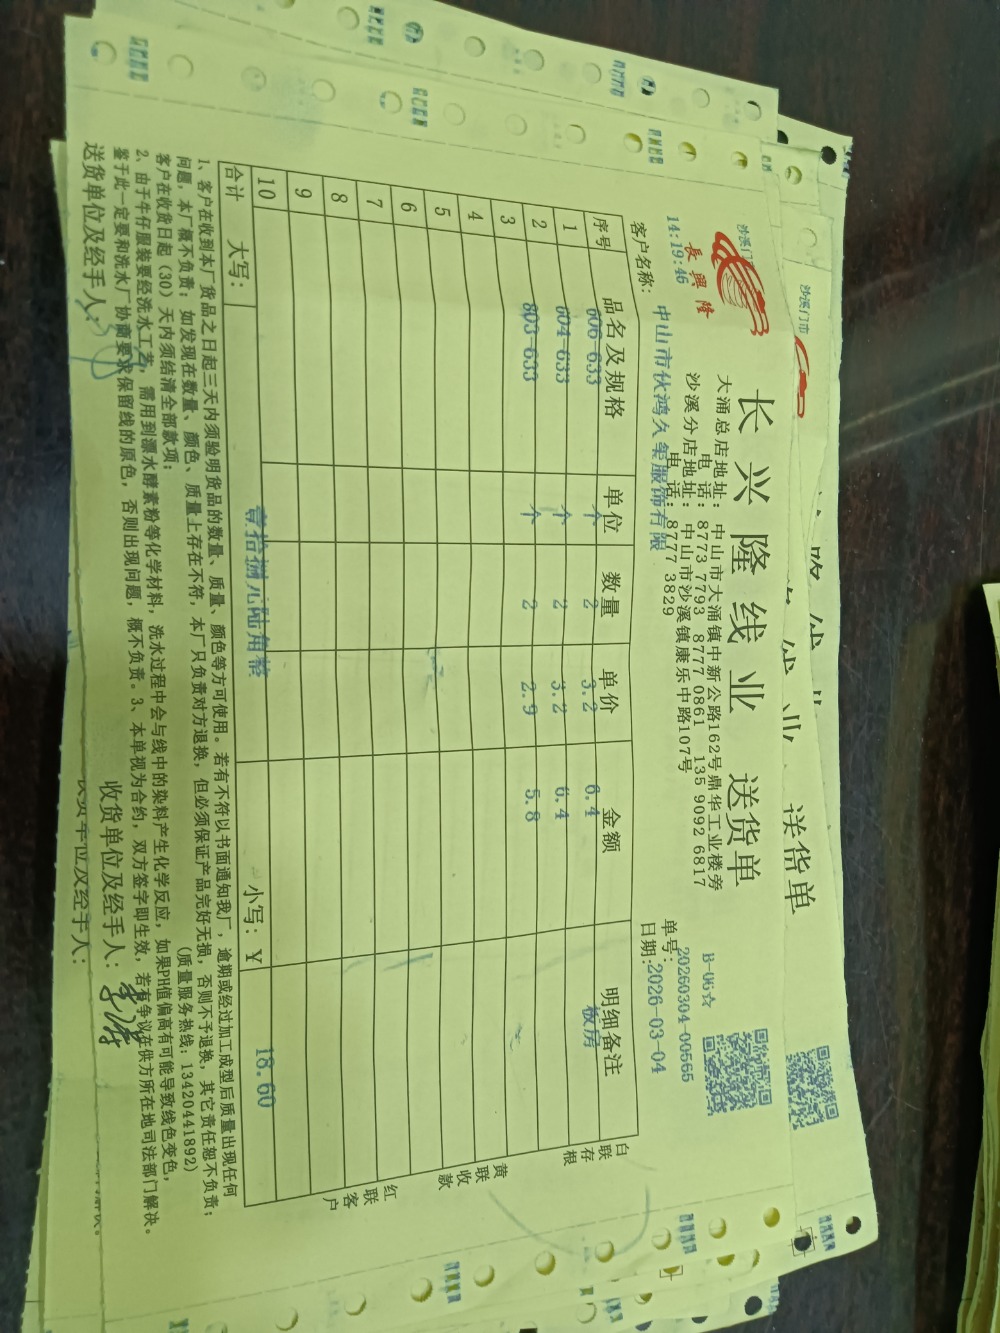 沙溪门市
長興隆
长兴隆线业 送货单
大涌总店地址：中山市大涌镇中新公路162号鼎华工业楼旁
电话：8773 7793 8777 0861 135 9092 6817
沙溪分店地址：中山市沙溪镇康乐中路107号
电话：8777 3829
B-06☆
14:19:46
单号：20260304-00565
客户名称：中山市伙鸿久玺服饰有限
日期：2026-03-04
序号 品名及规格 单位 数量 单价 金额 明细备注
1 606-633 个 2 3.2 6.4 板房
2 604-633 个 2 3.2 6.4
3 803-633 个 2 2.9 5.8
4
5
6
7
8
9
10
合计 大写：壹拾捌元陆角整 小写：¥ 18.60
白联存根
黄联收款
红联客户
1、客户在收到本厂货品之日起三天内须验明货品的数量、质量、颜色等方可使用。若有不符以书面通知我厂，逾期或经过加工成型后质量出现任何
问题，本厂概不负责；如发现在数量、颜色、质量上存在不符，本厂只负责对方退换，但必须保证产品完好无损，否则不予退换，其它责任恕不负责；
客户在收货日起（30）天内须结清全部款项；
（质量服务热线：13420441892）
2、由于牛仔服装要经洗水工艺，需用到漂水酵素粉等化学材料，洗水过程中会与线中的染料产生化学反应，如果PH值偏高有可能导致线色变色，
鉴于此一定要和洗水厂协商要求保留线的原色，否则出现问题，概不负责。3、本单视为合约，双方签字即生效，若有争议在供方所在地司法部门解决。
送货单位及经手人：
收货单位及经手人：
沙溪门市
送货单